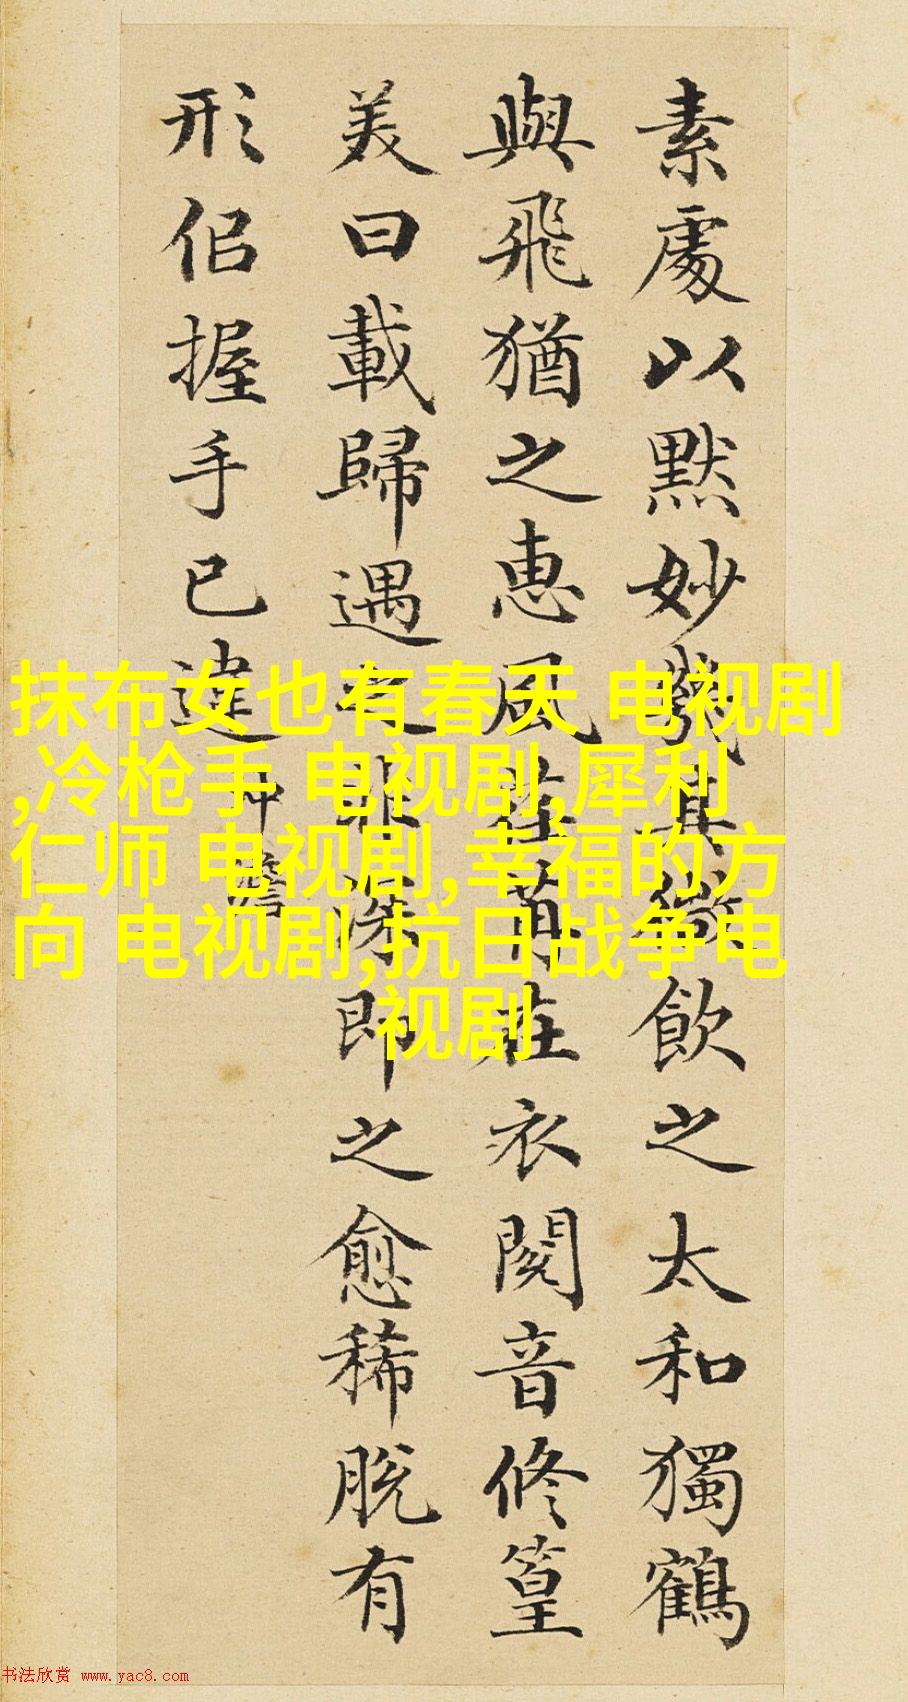 素處以默妙機其微飲之太和獨鶴
與飛猶之惠風荏苒在衣閱音修篁
美曰載歸遇之非深即之愈稀脫有
形佀握手已違
沖澹
抹布女也有春天 电视剧
,冷枪手 电视剧,犀利
仁师 电视剧,幸福的方
向 电视剧,抗日战争电
视剧
书法欣赏 www.yac8.com